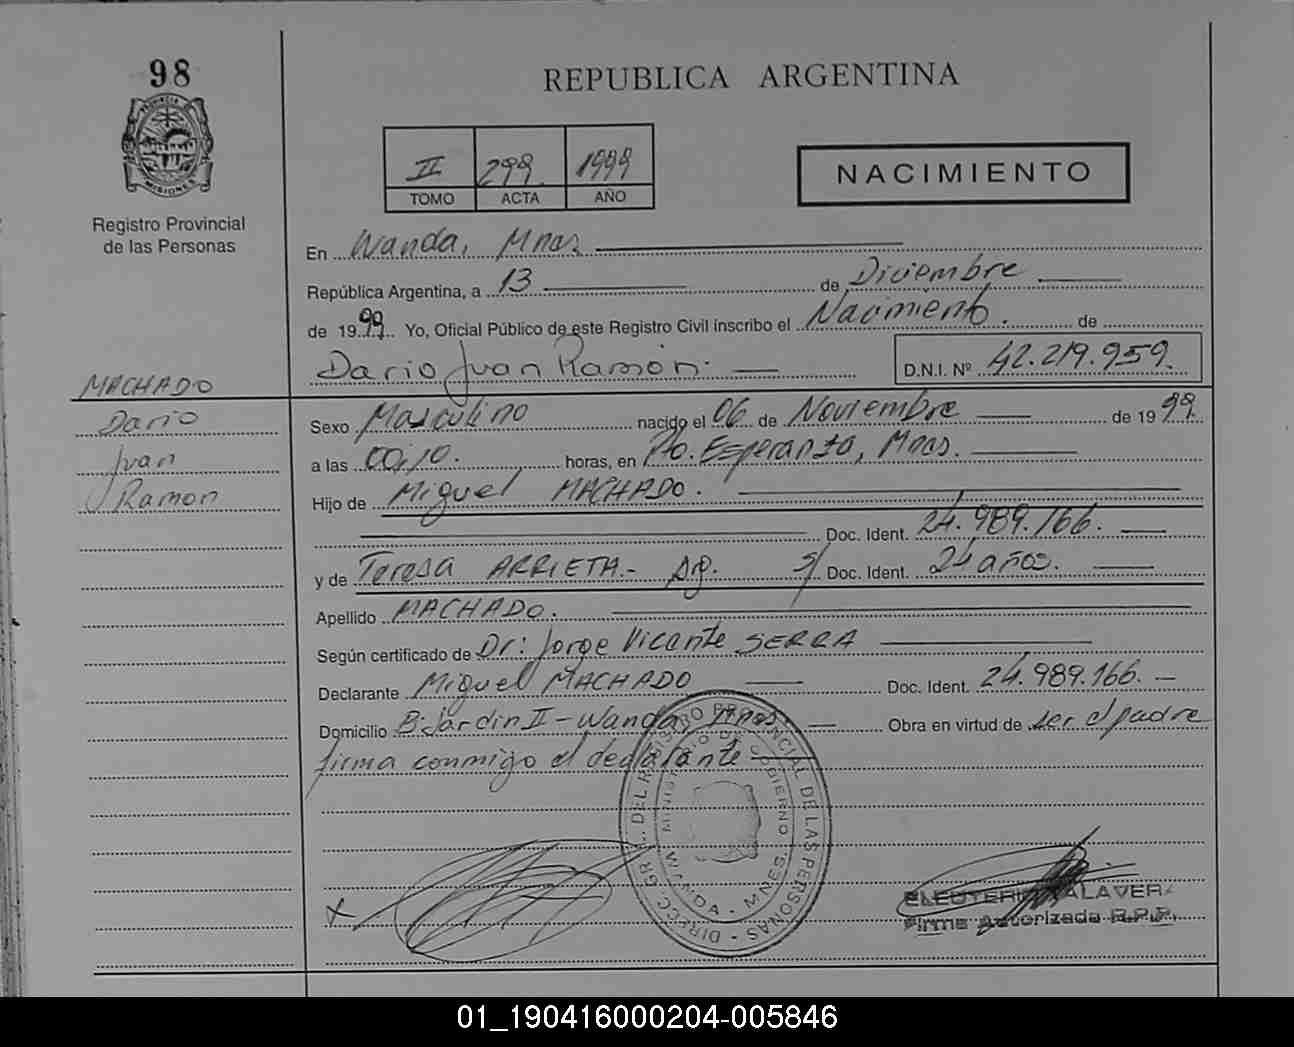 98
PROVINCIA DE
MISIONES
Registro Provincial
de las Personas
REPUBLICA ARGENTINA
II 299. 1999
TOMO ACTA AÑO
NACIMIENTO
En Wanda, Mnes.
República Argentina, a 13 de Diciembre
de 1999 Yo, Oficial Público de este Registro Civil inscribo el Nacimiento. de
Dario Juan Ramón. D.N.I. Nº 42.219.959.
MACHADO
Dario
Juan
Ramon
Sexo Masculino nacido el 06 de Noviembre de 1999.
a las 00,10. horas, en Pto. Esperanza, Mnes.
Hijo de Miguel MACHADO.
Doc. Ident. 24.989.166.
y de Teresa ARRIETA.- Arg. S/ Doc. Ident. 24 años.
Apellido MACHADO.
Según certificado de Dr: Jorge Vicente SERRA
Declarante Miguel MACHADO Doc. Ident. 24.989.166.
Domicilio B: Jardin II - Wanda, Mnes. Obra en virtud de ser el padre
firma conmigo el declarante
DIREC. GRAL. DEL REGISTRO PROVINCIAL DE LAS PERSONAS
MINISTERIO DE GOBIERNO
WANDA - MNES.
X
ELEUTERIO ALAVER
Firma Autorizada R.P.P.
01_190416000204-005846